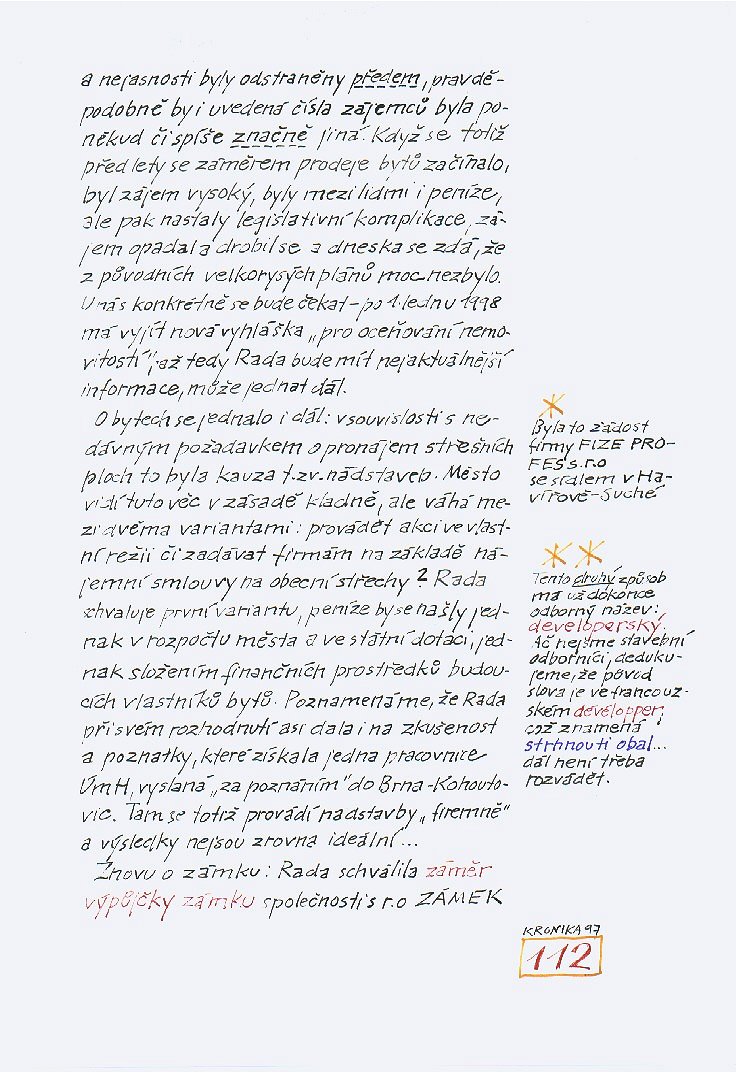 a nejasnosti byly odstraněny předem, pravdě-
podobně by i uvedená čísla zájemců byla po-
někud či spíše značně jiná. Když se totiž
před lety se záměrem prodeje bytů začínalo,
byl zájem vysoký, byly mezi lidmi i peníze,
ale pak nastaly legislativní komplikace, zá-
jem opadal a drobil se a dneska se zdá, že
z původních velkorysých plánů moc nezbylo.
U nás konkrétně se bude čekat – po 1. lednu 1998
má vyjít nová vyhláška „pro oceňování nemo-
vitostí", až tedy Rada bude mít nejaktuálnější
informace, může jednat dál.
O bytech se jednalo i dál: v souvislosti s ne-
dávným požadavkem o pronájem střešních
ploch to byla kauza t.zv. nádstaveb. Město
vidí tuto věc v zásadě kladně, ale váhá me-
zi dvěma variantami: provádět akci ve vlast-
ní režii či zadávat firmám na základě ná-
jemní smlouvy na obecní střechy? Rada
schvaluje první variantu, peníze by se našly jed-
nak v rozpočtu města a ve státní dotaci, jed-
nak složením finančních prostředků budou-
cích vlastníků bytů. Poznamenáme, že Rada
při svém rozhodnutí asi dala i na zkušenost
a poznatky, které získala jedna pracovnice
ÚmH, vyslaná „za poznáním" do Brna-Kohouto-
vic. Tam se totiž provádí nadstavby „firemně"
a výsledky nejsou zrovna ideální...
Znovu o zámku: Rada schválila záměr
výpůjčky zámku společnosti s r.o ZÁMEK
Byla to žádost
firmy FIZE PRO-
FES s.r.o
se sídlem v Ha-
vířově-Suché
Tento druhý způsob
má už dokonce
odborný název:
developerský.
Ač nejsme stavební
odborníci, deduku-
jeme, že původ
slova je ve francouz-
ském développer,
což znamená
strhnouti obal...
dál není třeba
rozvádět.
KRONIKA 97
112